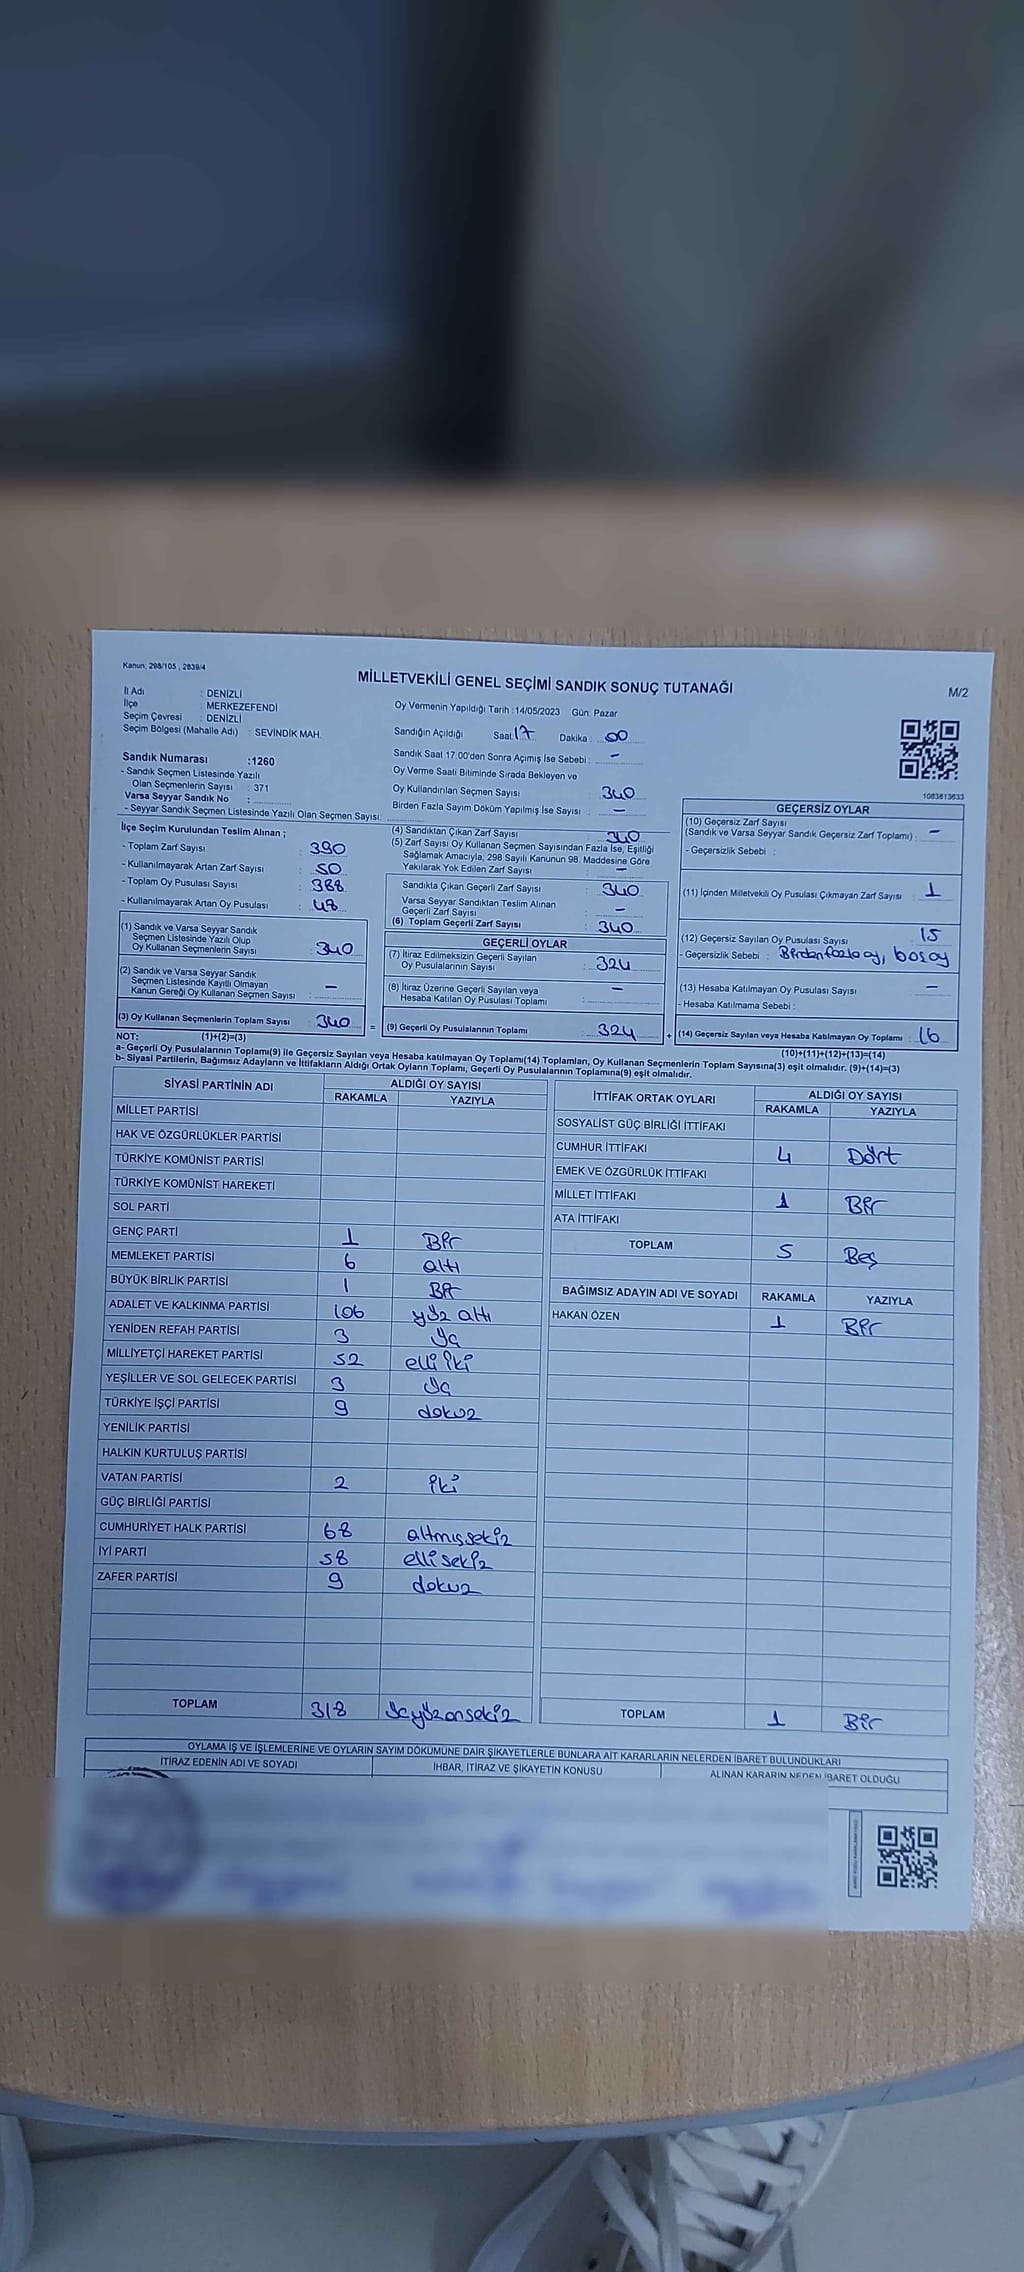 Kanun, 298/105 , 2839/4
MİLLETVEKİLİ GENEL SEÇİMİ SANDIK SONUÇ TUTANAĞI
M/2
İl Adı : DENİZLİ
İlçe : MERKEZEFENDİ
Seçim Çevresi : DENİZLİ
Seçim Bölgesi (Mahalle Adı) : SEVİNDİK MAH.
Oy Vermenin Yapıldığı Tarih :14/05/2023 Gün: Pazar
Sandığın Açıldığı Saat 17 Dakika : 00
Sandık Saat 17:00'den Sonra Açımış İse Sebebi : -
Oy Verme Saati Bitiminde Sırada Bekleyen ve
Oy Kullandırılan Seçmen Sayısı : 340
Birden Fazla Sayım Döküm Yapılmış İse Sayısı : -
Sandık Numarası :1260
- Sandık Seçmen Listesinde Yazılı
Olan Seçmenlerin Sayısı : 371
Varsa Seyyar Sandık No :
- Seyyar Sandık Seçmen Listesinde Yazılı Olan Seçmen Sayısı:
1083813633
İlçe Seçim Kurulundan Teslim Alınan ;
- Toplam Zarf Sayısı : 390
- Kullanılmayarak Artan Zarf Sayısı : 50
- Toplam Oy Pusulası Sayısı : 388
- Kullanılmayarak Artan Oy Pusulası : 48
(1) Sandık ve Varsa Seyyar Sandık
Seçmen Listesinde Yazılı Olup
Oy Kullanan Seçmenlerin Sayısı : 340
(2) Sandık ve Varsa Seyyar Sandık
Seçmen Listesinde Kayıtlı Olmayan
Kanun Gereği Oy Kullanan Seçmen Sayısı : -
(3) Oy Kullanan Seçmenlerin Toplam Sayısı : 340
(4) Sandıktan Çıkan Zarf Sayısı : 340
(5) Zarf Sayısı Oy Kullanan Seçmen Sayısından Fazla İse, Eşitliği
Sağlamak Amacıyla; 298 Sayılı Kanunun 98. Maddesine Göre
Yakılarak Yok Edilen Zarf Sayısı : -
Sandıkta Çıkan Geçerli Zarf Sayısı : 340
Varsa Seyyar Sandıktan Teslim Alınan
Geçerli Zarf Sayısı : -
(6) Toplam Geçerli Zarf Sayısı : 340
GEÇERLİ OYLAR
(7) İtiraz Edilmeksizin Geçerli Sayılan
Oy Pusulalarının Sayısı : 324
(8) İtiraz Üzerine Geçerli Sayılan veya
Hesaba Katılan Oy Pusulası Toplamı : -
= (9) Geçerli Oy Pusulalarının Toplamı : 324
GEÇERSİZ OYLAR
(10) Geçersiz Zarf Sayısı
(Sandık ve Varsa Seyyar Sandık Geçersiz Zarf Toplamı) : -
- Geçersizlik Sebebi :
(11) İçinden Milletvekili Oy Pusulası Çıkmayan Zarf Sayısı : 1
(12) Geçersiz Sayılan Oy Pusulası Sayısı : 15
- Geçersizlik Sebebi : Birden fazla oy, boş oy
(13) Hesaba Katılmayan Oy Pusulası Sayısı : -
- Hesaba Katılmama Sebebi :
+ (14) Geçersiz Sayılan veya Hesaba Katılmayan Oy Toplamı : 16
NOT: (1)+(2)=(3)
(10)+(11)+(12)+(13)=(14)
a- Geçerli Oy Pusulalarının Toplamı(9) ile Geçersiz Sayılan veya Hesaba katılmayan Oy Toplamı(14) Toplamları, Oy Kullanan Seçmenlerin Toplam Sayısına(3) eşit olmalıdır. (9)+(14)=(3)
b- Siyasi Partilerin, Bağımsız Adayların ve İttifakların Aldığı Ortak Oyların Toplamı, Geçerli Oy Pusulalarının Toplamına(9) eşit olmalıdır.
SİYASİ PARTİNİN ADI ALDIĞI OY SAYISI
RAKAMLA YAZIYLA
MİLLET PARTİSİ
HAK VE ÖZGÜRLÜKLER PARTİSİ
TÜRKİYE KOMÜNİST PARTİSİ
TÜRKİYE KOMÜNİST HAREKETİ
SOL PARTİ
GENÇ PARTİ 1 Bir
MEMLEKET PARTİSİ 6 altı
BÜYÜK BİRLİK PARTİSİ 1 Bir
ADALET VE KALKINMA PARTİSİ 106 yüz altı
YENİDEN REFAH PARTİSİ 3 Üç
MİLLİYETÇİ HAREKET PARTİSİ 52 elli iki
YEŞİLLER VE SOL GELECEK PARTİSİ 3 Üç
TÜRKİYE İŞÇİ PARTİSİ 9 dokuz
YENİLİK PARTİSİ
HALKIN KURTULUŞ PARTİSİ
VATAN PARTİSİ 2 iki
GÜÇ BİRLİĞİ PARTİSİ
CUMHURİYET HALK PARTİSİ 68 altmışsekiz
İYİ PARTİ 58 elli sekiz
ZAFER PARTİSİ 9 dokuz
TOPLAM 318 Üçyüzonsekiz
İTTİFAK ORTAK OYLARI ALDIĞI OY SAYISI
RAKAMLA YAZIYLA
SOSYALİST GÜÇ BİRLİĞİ İTTİFAKI
CUMHUR İTTİFAKI 4 Dört
EMEK VE ÖZGÜRLÜK İTTİFAKI
MİLLET İTTİFAKI 1 Bir
ATA İTTİFAKI
TOPLAM 5 Beş
BAĞIMSIZ ADAYIN ADI VE SOYADI RAKAMLA YAZIYLA
HAKAN ÖZEN 1 Bir
TOPLAM 1 Bir
OYLAMA İŞ VE İŞLEMLERİNE VE OYLARIN SAYIM DÖKÜMÜNE DAİR ŞİKAYETLERLE BUNLARA AİT KARARLARIN NELERDEN İBARET BULUNDUKLARI
İTİRAZ EDENİN ADI VE SOYADI İHBAR, İTİRAZ VE ŞİKAYETİN KONUSU ALINAN KARARIN NEDEN İBARET OLDUĞU